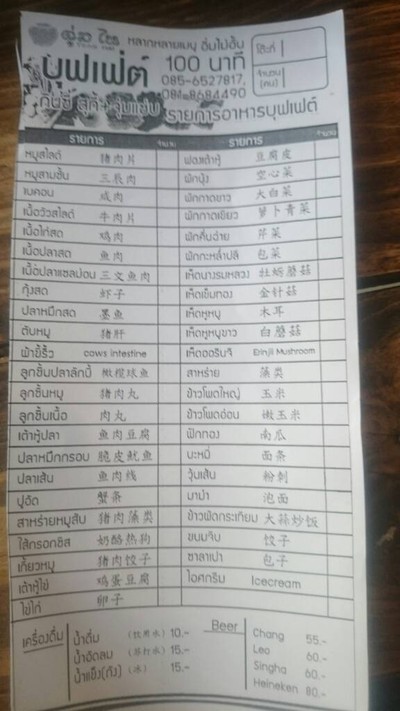 หลากหลายเมนู อิ่มไม่อั้น
บุฟเฟ่ต์ 100 นาที
085-6527817,
081-8684490
โต๊ะที่
จำนวน
(คน)
รายการอาหารบุฟเฟ่ต์
รายการ จำนวน รายการ จำนวน
หมูสไลด์ 猪肉片 ฟองเต้าหู้ 豆腐皮
หมูสามชั้น 三辰肉 ผักบุ้ง 空心菜
เบคอน 咸肉 ผักกาดขาว 大白菜
เนื้อวัวสไลด์ 牛肉片 ผักกาดเขียว 萝卜青菜
เนื้อไก่สด 鸡肉 ผักคื่นฉ่าย 芹菜
เนื้อปลาสด 鱼肉 ผักกะหล่ำปลี 包菜
เนื้อปลาแซลม่อน 三文鱼肉 เห็ดนางรมหลวง 牡蛎蘑菇
กุ้งสด 虾子 เห็ดเข็มทอง 金针菇
ปลาหมึกสด 墨鱼 เห็ดหูหนู 木耳
ตับหมู 猪肝 เห็ดหูหนูขาว 白蘑菇
ผ้าขี้ริ้ว cows intestine เห็ดออรินจิ Erinji Mushroom
ลูกชิ้นปลาลักบี้ 橄榄球鱼 สาหร่าย 藻类
ลูกชิ้นหมู 猪肉丸 ข้าวโพดใหญ่ 玉米
ลูกชิ้นเนื้อ 肉丸 ข้าวโพดอ่อน 嫩玉米
เต้าหู้ปลา 鱼肉豆腐 ฟักทอง 南瓜
ปลาหมึกกรอบ 脆皮鱿鱼 บะหมี่ 面条
ปลาเส้น 鱼肉线 วุ้นเส้น 粉刺
ปูอัด 蟹条 มาม่า 泡面
สาหร่ายหมูสับ 猪肉藻类 ข้าวผัดกระเทียม 大蒜炒饭
ไส้กรอกชีส 奶酪热狗 ขนมจีบ 饺子
เกี๊ยวหมู 猪肉饺子 ซาลาเปา 包子
เต้าหู้ไข่ 鸡蛋豆腐 ไอศกรีม Icecream
ไข่ไก่ 卵子
เครื่องดื่ม น้ำดื่ม (饮用水) 10.- Beer Chang 55.-
น้ำอัดลม (苏打水) 15.- Leo 60.-
น้ำแข็ง(ถัง) (冰) 15.- Singha 60.-
Heineken 80.-